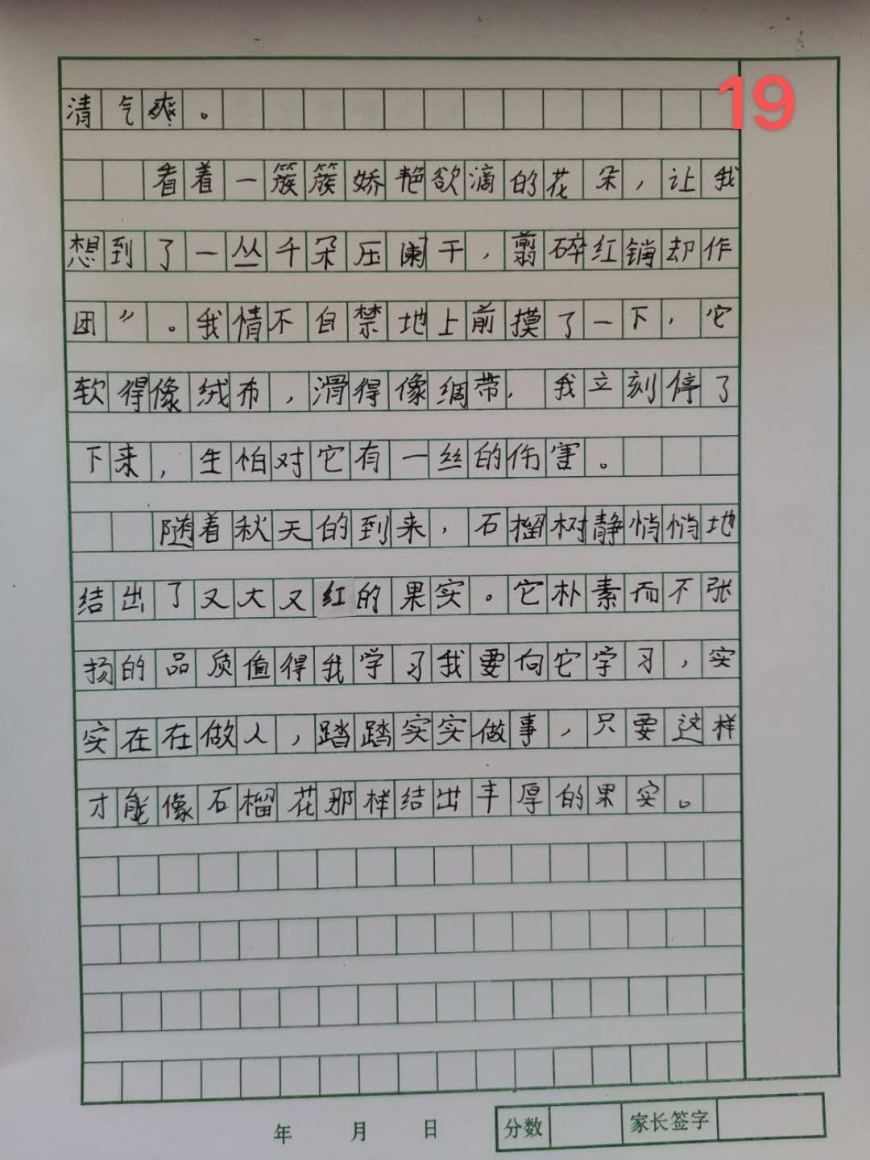 19
清气爽。
看着一簇簇娇艳欲滴的花朵，让我
想到了一丛千朵压阑干，翦碎红销却作
团”。我情不自禁地上前摸了一下，它
软得像绒布，滑得像绸带，我立刻停了
下来，生怕对它有一丝的伤害。
随着秋天的到来，石榴树静悄悄地
结出了又大又红的果实。它朴素而不张
扬的品质值得我学习我要向它学习，实
实在在做人，踏踏实实做事，只要这样
才能像石榴花那样结出丰厚的果实。
年 月 日 分数 家长签字